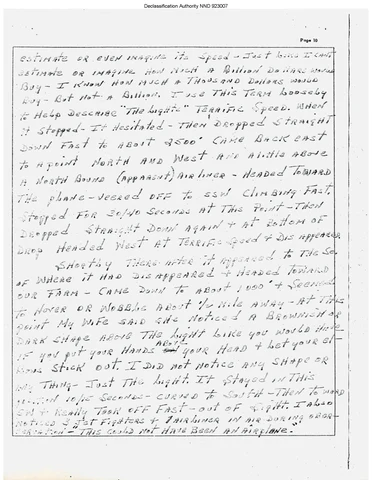 Declassification Authority NND 923007
Page 10
ESTIMATE OR EVEN IMAGINE ITS SPEED - JUST LIKE I CAN'T
ESTIMATE OR IMAGINE HOW MUCH A BILLION DOLLARS WOULD
BUY - I KNOW HOW MUCH A THOUSAND DOLLARS WOULD
BUY - BUT NOT A BILLION. I USE THIS TERM LOOSELY
TO HELP DESCRIBE "THE LIGHTS" TERRIFIC SPEED. WHEN
IT STOPPED - IT HESITATED - THEN DROPPED STRAIGHT
DOWN FAST TO ABOUT 2500' CAME BACK EAST
TO A POINT NORTH AND WEST AND A LITTLE ABOVE
A NORTH BOUND (APPARENT) AIRLINER - HEADED TOWARD
THE PLANE - VEERED OFF TO SSW CLIMBING FAST,
STOPPED FOR 30/40 SECONDS AT THIS POINT - THEN
DROPPED STRAIGHT DOWN AGAIN & AT BOTTOM OF
DROP HEADED WEST AT TERRIFIC SPEED & DISAPPEARED
SHORTLY THERE AFTER IT APPEARED TO THE SO.
OF WHERE IT HAD DISAPPEARED & HEADED TOWARD
OUR FARM - CAME DOWN TO ABOUT 1,000' & SEEMED
TO HOVER OR WOBBLE ABOUT 1/2 MILE AWAY - AT THIS
POINT MY WIFE SAID SHE NOTICED A BROWNISH OR
DARK SHAPE ABOVE THE LIGHT LIKE YOU WOULD HAVE
IF YOU PUT YOUR HANDS ABOVE YOUR HEAD & LET YOUR EL-
BOWS STICK OUT. I DID NOT NOTICE ANY SHAPE OR
ANY THING - JUST THE LIGHT. IT STAYED IN THIS
10/15 SECONDS - CURVED TO SOUTH - THEN TOWARD
SW & REALLY TOOK OFF FAST - OUT OF SIGHT. I ALSO
NOTICED 3 JET FIGHTERS & 1 AIRLINER IN AIR DURING OBSER-
VATION - THIS COULD NOT HAVE BEEN AN AIRPLANE."